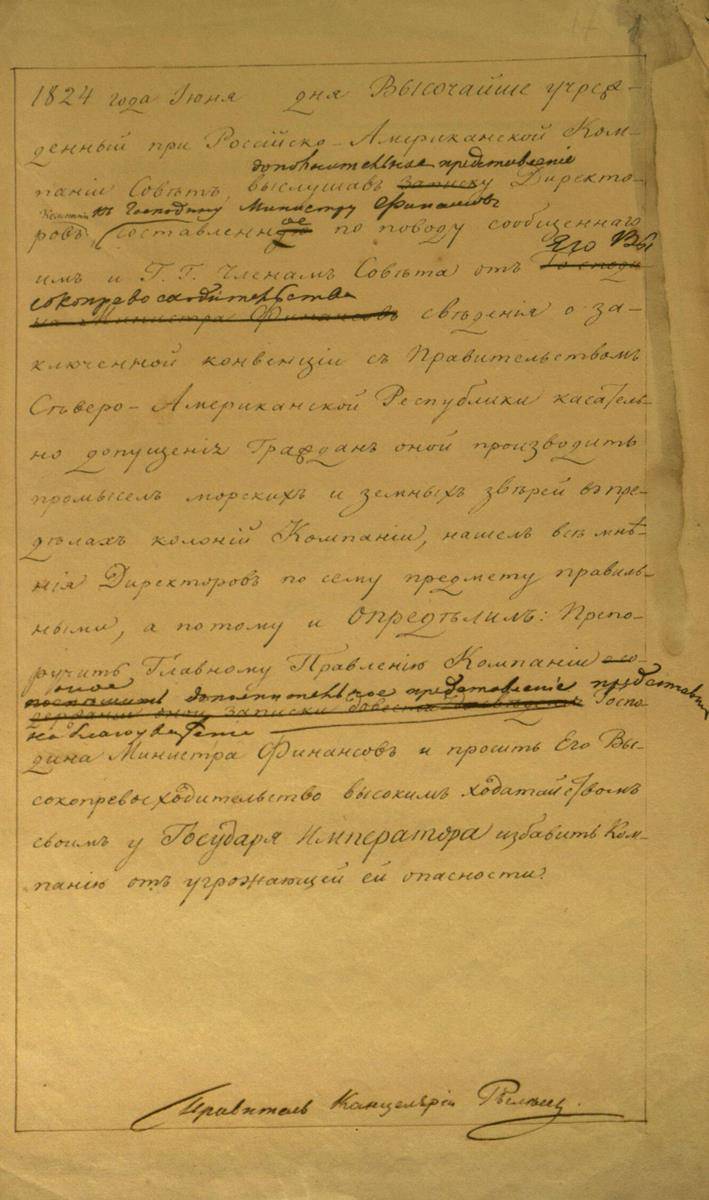 1824 года Іюня дня Высочайше учреж-
денный при Россійско-Американской Ком-
дополнительное представленіе
паніи Совѣтъ, выслушавъ записку Директо-
къ Господину Министру Финансовъ
ровъ, составленное по поводу сообщеннаго
Его Вы
имъ и Г. Г. Членамъ Совѣта отъ Господи
сокопревосходительства
на Министра Финансовъ свѣденія о за-
ключенной конвенціи съ Правительствомъ
Сѣверо-Американской Республики касатель-
но допущенія Гражданъ оной производить
промыселъ морскихъ и земныхъ звѣрей въ пре-
дѣлахъ колоній Компаніи, нашелъ всѣ мнѣ-
нія Директоровъ по сему предмету правиль-
ными, а потому и опредѣлилъ: Препо-
ручить Главному Правленію Компаніи
оное дополнительное представленіе представить
записки Госпо
на благоуваженіе
дина Министра Финансовъ и просить Его Вы-
сокопревосходительство высокимъ ходатайствомъ
своимъ у Государя Императора избавить Ком-
панію отъ угрожающей ей опасности.
Правитель Канцеляріи Рылѣевъ.